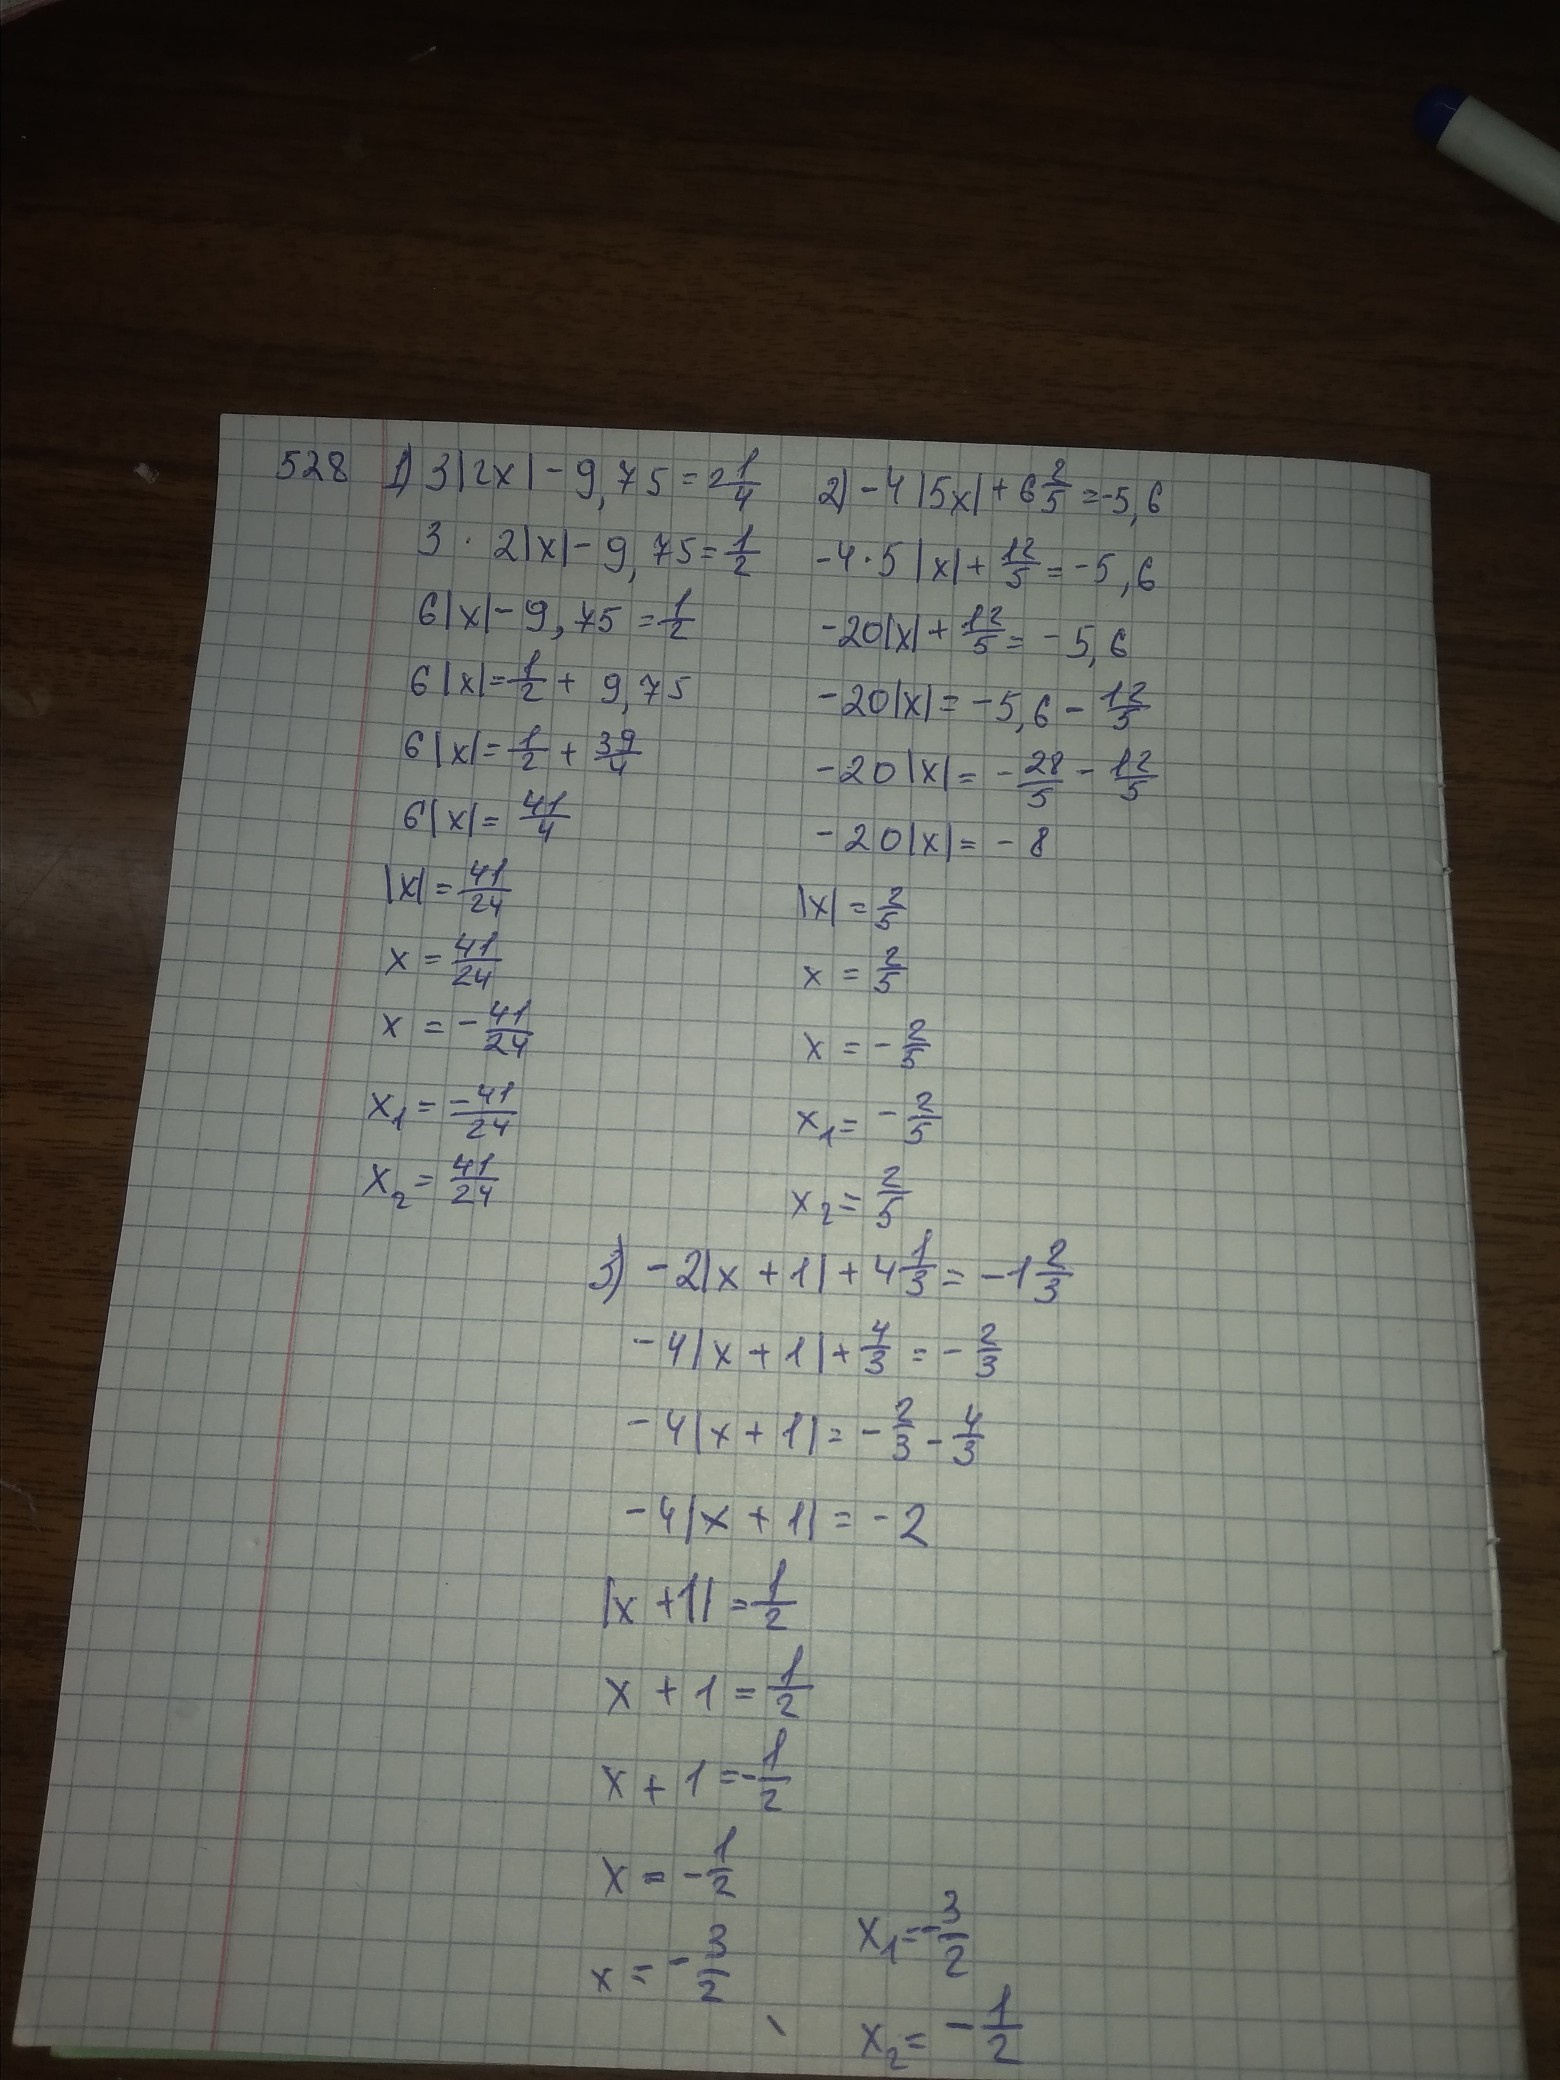 528 1) 3|2x| - 9,75 = 2 1/4
3 · 2|x| - 9,75 = 1/2
6|x| - 9,75 = 1/2
6|x| = 1/2 + 9,75
6|x| = 1/2 + 39/4
6|x| = 41/4
|x| = 41/24
x = 41/24
x = - 41/24
x₁ = -41/24
x₂ = 41/24
2) -4|5x| + 6 2/5 = -5,6
-4·5|x| + 12/5 = -5,6
-20|x| + 12/5 = -5,6
-20|x| = -5,6 - 12/5
-20|x| = - 28/5 - 12/5
-20|x| = -8
|x| = 2/5
x = 2/5
x = - 2/5
x₁ = - 2/5
x₂ = 2/5
3) -2|x + 1| + 4 1/3 = -1 2/3
-4|x + 1| + 4/3 = - 2/3
-4|x + 1| = - 2/3 - 4/3
-4|x + 1| = -2
|x + 1| = 1/2
x + 1 = 1/2
x + 1 = - 1/2
x = - 1/2
x = - 3/2
x₁ = - 3/2
x₂ = - 1/2